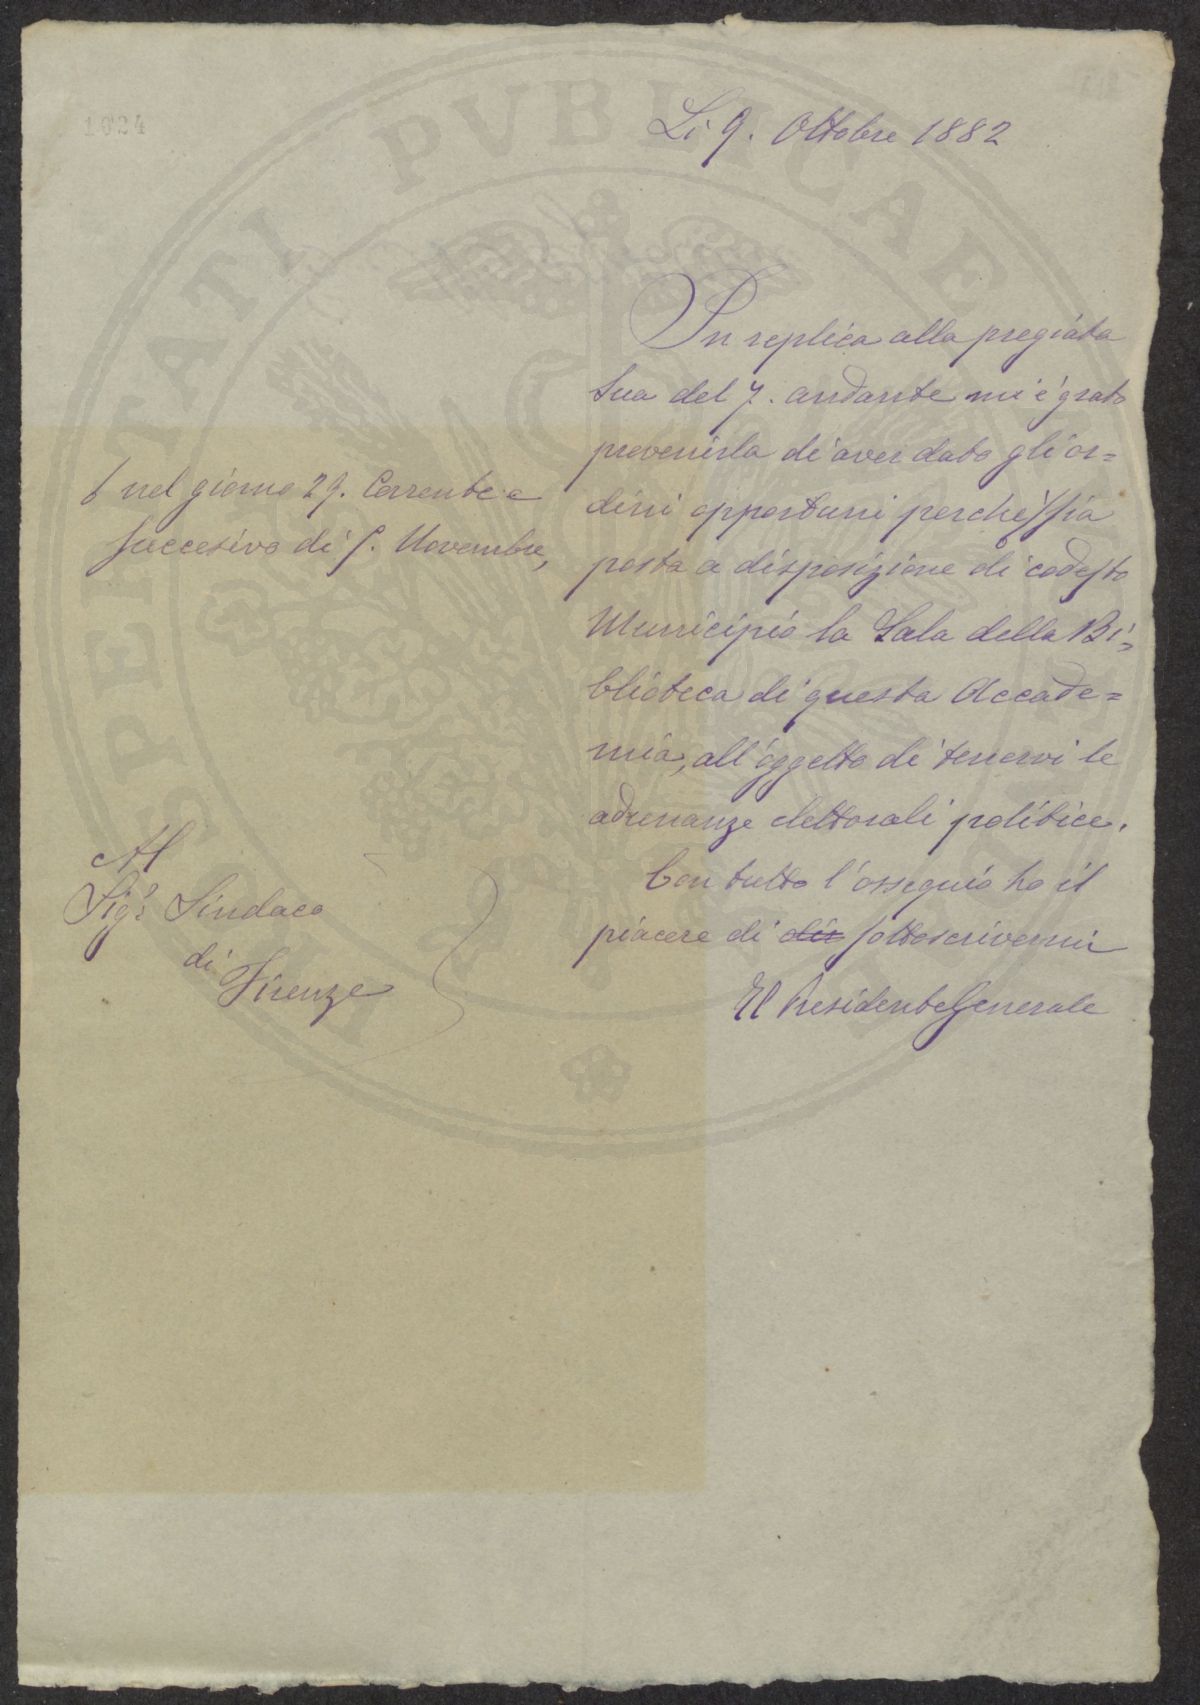 1024
Li 9. Ottobre 1882
In replica alla pregiata
Sua del 7. andante mi è grato
prevenirla di aver dato gli or=
dini opportuni perchè sia
posta a disposizione di codesto
Municipio la Sala della Bi=
blioteca di questa Accade=
mia, all'oggetto di tenervi le
adunanze elettorali politice.
Con tutto l'ossequio ho il
piacere di dir sottoscrivermi
Il Presidente Generale
nel giorno 29. Corrente e
successivo di 5. Novembre,
Al
Sigr Sindaco
di
Firenze